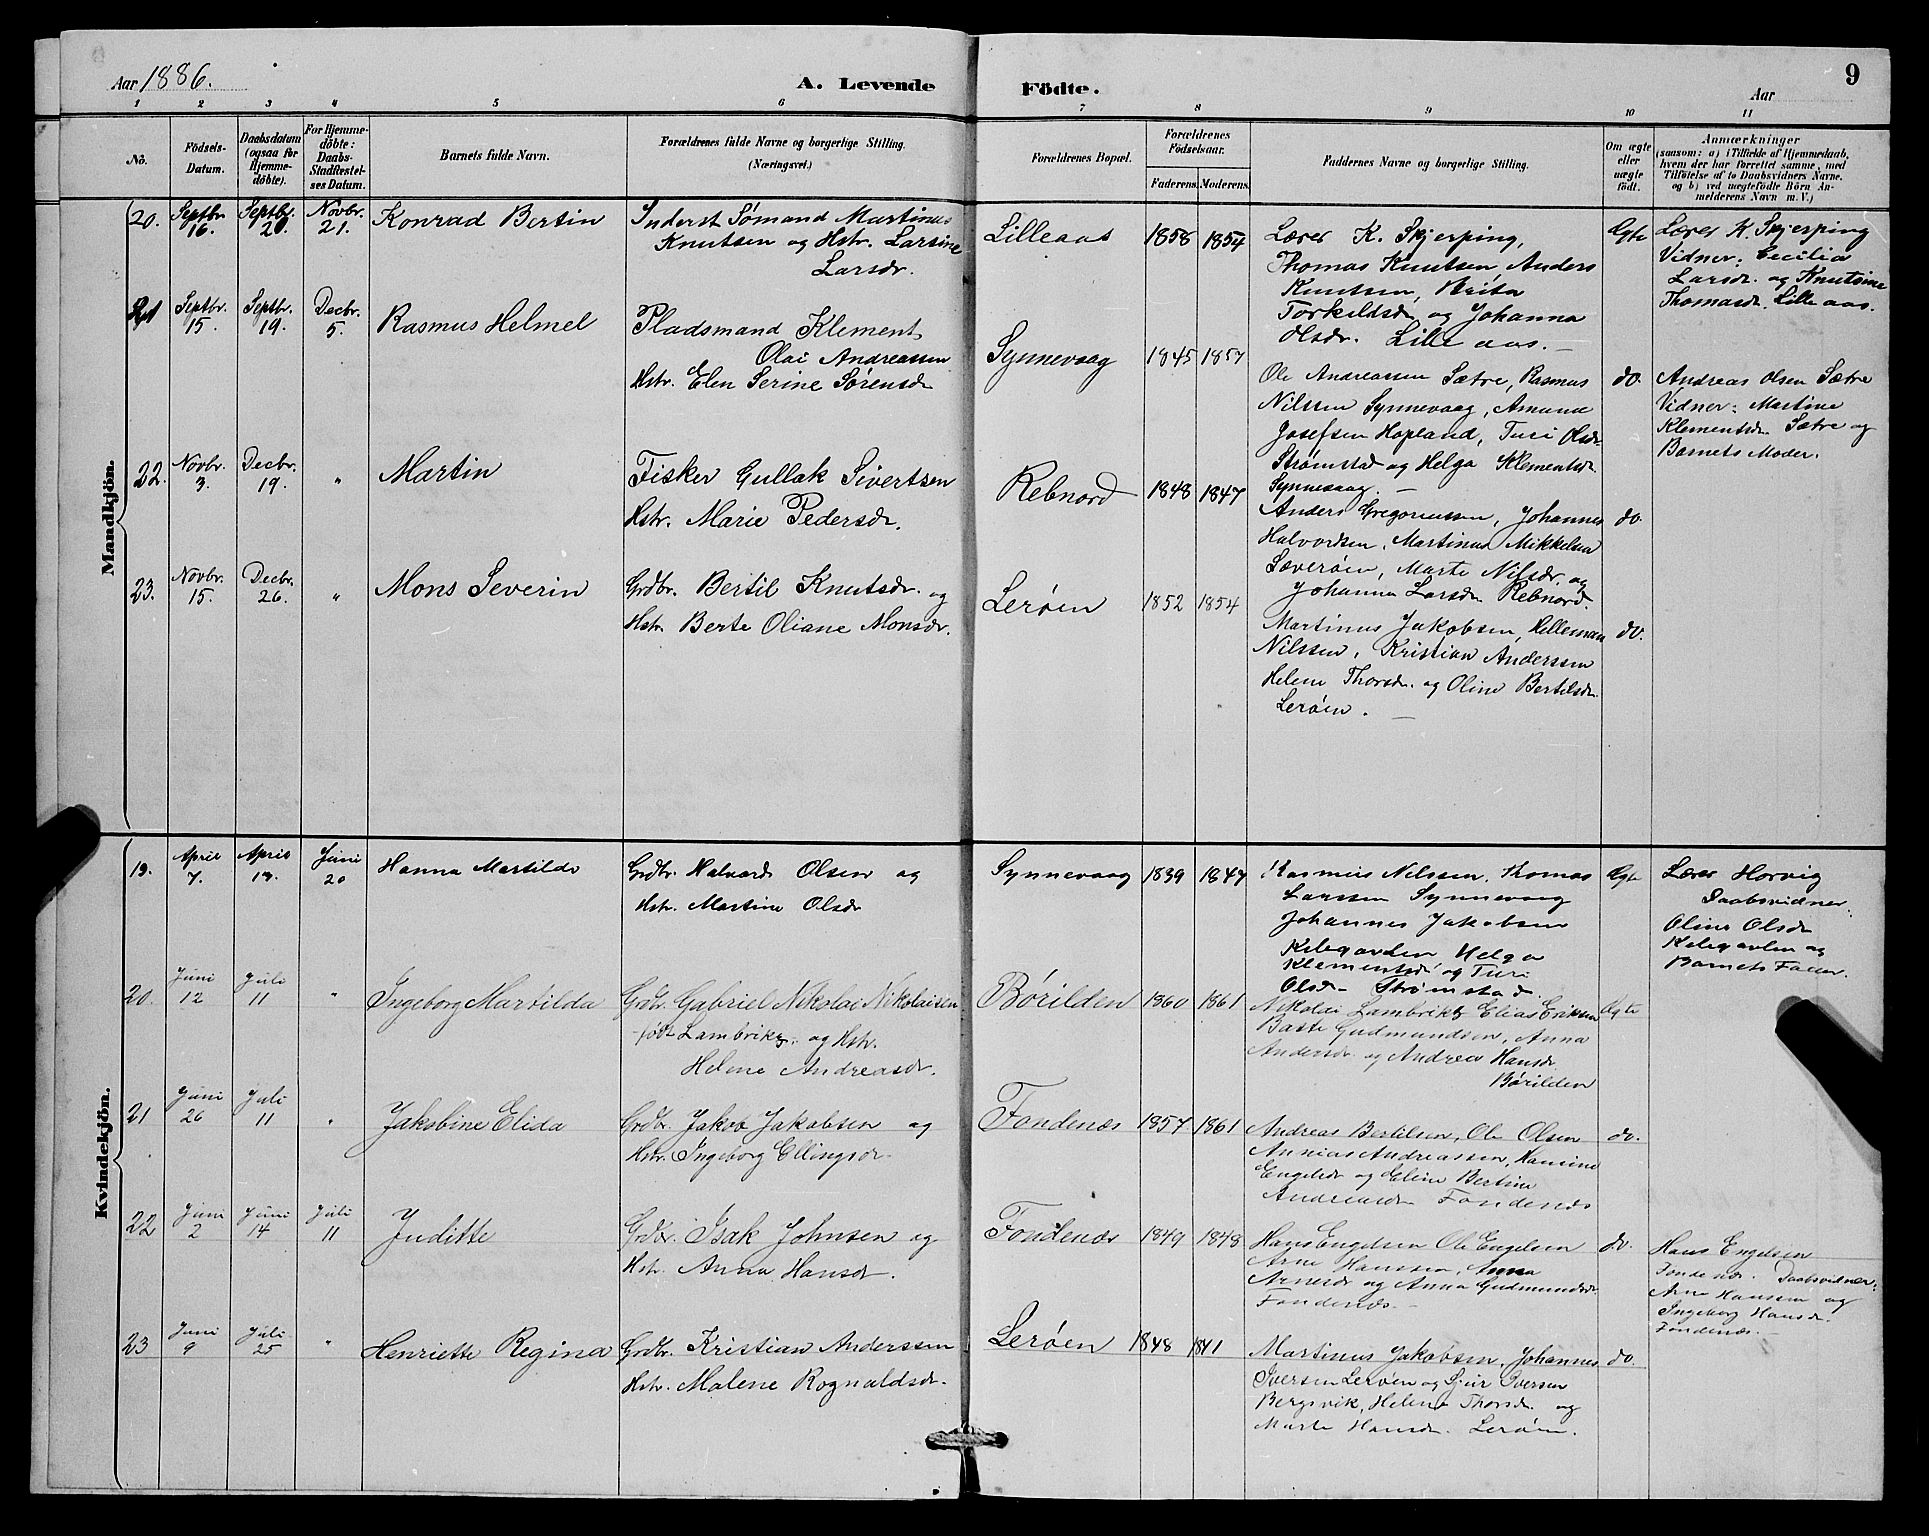 Aar 1886.
A. Levende Födte.
Aar
9
1 2 3 4 5 6 7 8 9 10 11
No.
Födsels-Datum.
Daabsdatum (ogsaa for Hjemme-döbte).
For Hjemme-döbte: Daabs-Stadfæstel-ses Datum.
Barnets fulde Navn.
Forældrenes fulde Navne og borgerlige Stilling.
(Næringsvei.)
Forældrenes Bopæl.
Forældrenes Födselsaar.
Faderens. Moderens.
Faddernes Navne og borgerlige Stilling.
Om ægte eller uægte födt.
Anmærkninger
(saasom: a) i Tilfælde af Hjemmedaab, hvem der har forrettet samme, med Tilföielse af to Daabsvidners Navne, og b) ved uægtefödte Börn An-melderens Navn m. V.)
Mandkjön.
20. Septbr. 16. Septbr. 20. Novbr. 21. Konrad Bertin
Inderst Sømand Martinus
Knutsen og Hstr. Larsine
Larsdr.
Lilleaas 1858 1854
Lærer K. Skjerping,
Thomas Knutsen, Anders
Knutsen, Brita
Torkildsdr og Johanna
Olsdr. Lilleaas. —
Ægte
Lærer K. Skjerping
Vidner: Cecilia
Larsdr. og Knutsine
Thomasdr. Lilleaas.
21 Septbr. 15. Septbr. 19. Decbr. 5. Rasmus Helmel
Pladsmand Klement
Olai Andreassen
Hstr. Elen Serine Sørensdr
Synnevaag 1845 1857
Ole Andreassen Sætre, Rasmus
Nilssen Synnevaag, Amund
Josefsen Hopland, Turi Olsdr
Strømstad og Helga Klementsdr
Synnevaag. —
do.
Andreas Olsen Sætre
Vidner: Martine
Klementsdr Sætre og
Barnets Moder.
22. Novbr. 3. Decbr. 19. " Martin
Fisker Gullak Sivertsen
Hstr. Marie Pedersdr.
Rebnord 1848 1847
Anders Gregoriussen, Johannes
Halvordsen, Martinus Mikkelsen
Sæverøen, Marte Nilsdr. og
Johanna Larsdr. Rebnord.
do.
23. Novbr. 15. Decbr. 26. " Mons Severin
Grdbr. Bertil Knutsdr. og
Hstr. Berte Oliane Monsdr.
Lerøen 1852 1854
Martinus Jakobsen, Helleman
Nilssen, Kristian Anderssen
Helene Thorsdr. og Oline Bertilsdr
Lerøen. —
do.
Kvindekjön.
19. April 7. April 13. Juni 20 Hanna Martilde
Grdbr. Halvard Olsen og
Hstr. Martine Olsdr
Synnevaag 1839 1847
Rasmus Nilssen, Thomas
Larssen Synnevaag
Johannes Jakobsen
Kilegarden Helga
Klementsdr og Turi
Olsdr Strømstad.
Ægte
Lærer Horvig
Daabsvidner:
Oline Olsdr
Kilegarden og
Barnets Fader.
20. Juni 12 Juli 11 " Ingeborg Martilda
Grdbr. Gabriel Nikolai Nikolaisen
født Lambriks. og Hstr.
Helene Andreasdr.
Børilden 1860 1861
Nikolai Lambriks, Elias Eriksen
Baste Gudmundsen, Anna
Andersdr og Andrea Hansdr
Børilden
Ægte
21 Juni 26 Juli 11 " Jakobine Elida
Grdbr. Jakob Jakobsen og
Hstr. Ingeborg Ellingsdr.
Fondenæs 1857 1861
Andreas Bertilsen, Ole Olsen
Annias Andreassen, Hansine
Engelsdr og Eline Bertine
Andreasdr Fondenæs
do.
22 Juni 2 Juni 14 Juli 11 Juditte
Grdbr. Isak Johnsen og
Hstr. Anna Hansdr.
Fondenæs 1849 1848
Hans Engelsen Ole Engelsen
Arne Hanssen, Anna
Arnesdr og Anna Gudmundsdr
Fondenæs. —
do.
Hans Engelsen
Fondenæs. Daabsvidner:
Arne Hanssen og
Ingeborg Hansdr.
Fondenæs. —
23 Juni 9 Juli 25 " Henriette Regina
Grdbr. Kristian Anderssen
Hstr. Malene Rognaldsdr.
Lerøen 1848 1841
Martinus Jakobsen, Johannes
Iversen Lerøen og Sjur Iversen
Bergsvik, Helene Thorsdr. og
Marte Hansdr. Lerøen.
do.